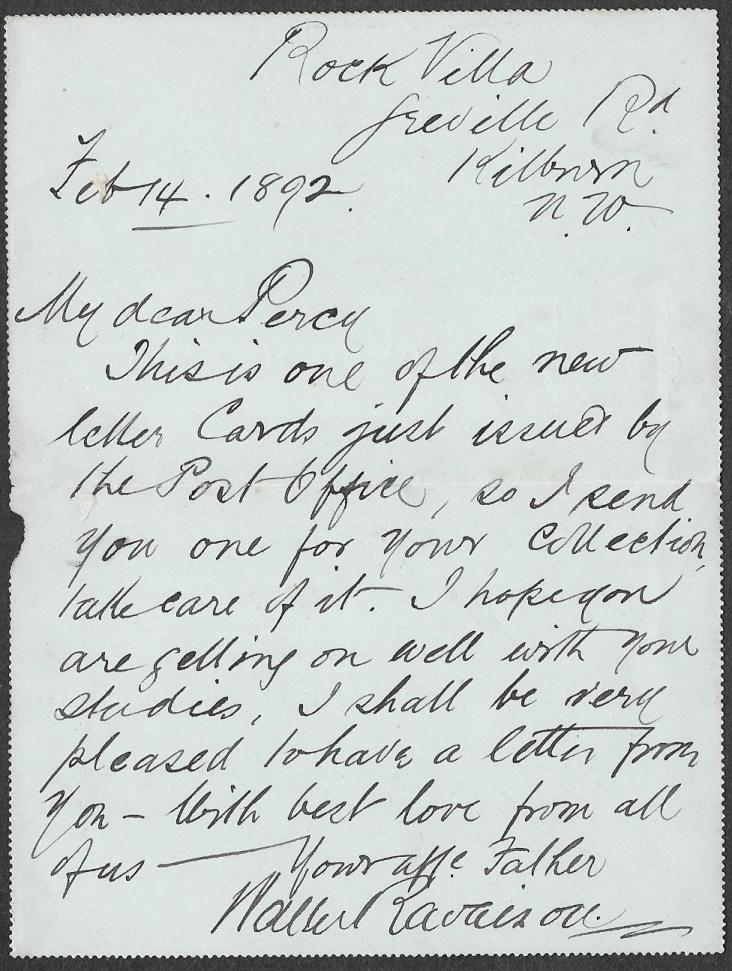 Rock Villa
Greville Rd.
Kilburn
N.W.
Feb 14. 1892.
My dear Percy
This is one of the new
letter Cards just issued by
the Post Office, so I send
you one for your Collection,
take care of it. I hope you
are getting on well with your
studies, I shall be very
pleased to have a letter from
you – With best love from all
of us — Your affe. Father
Walter